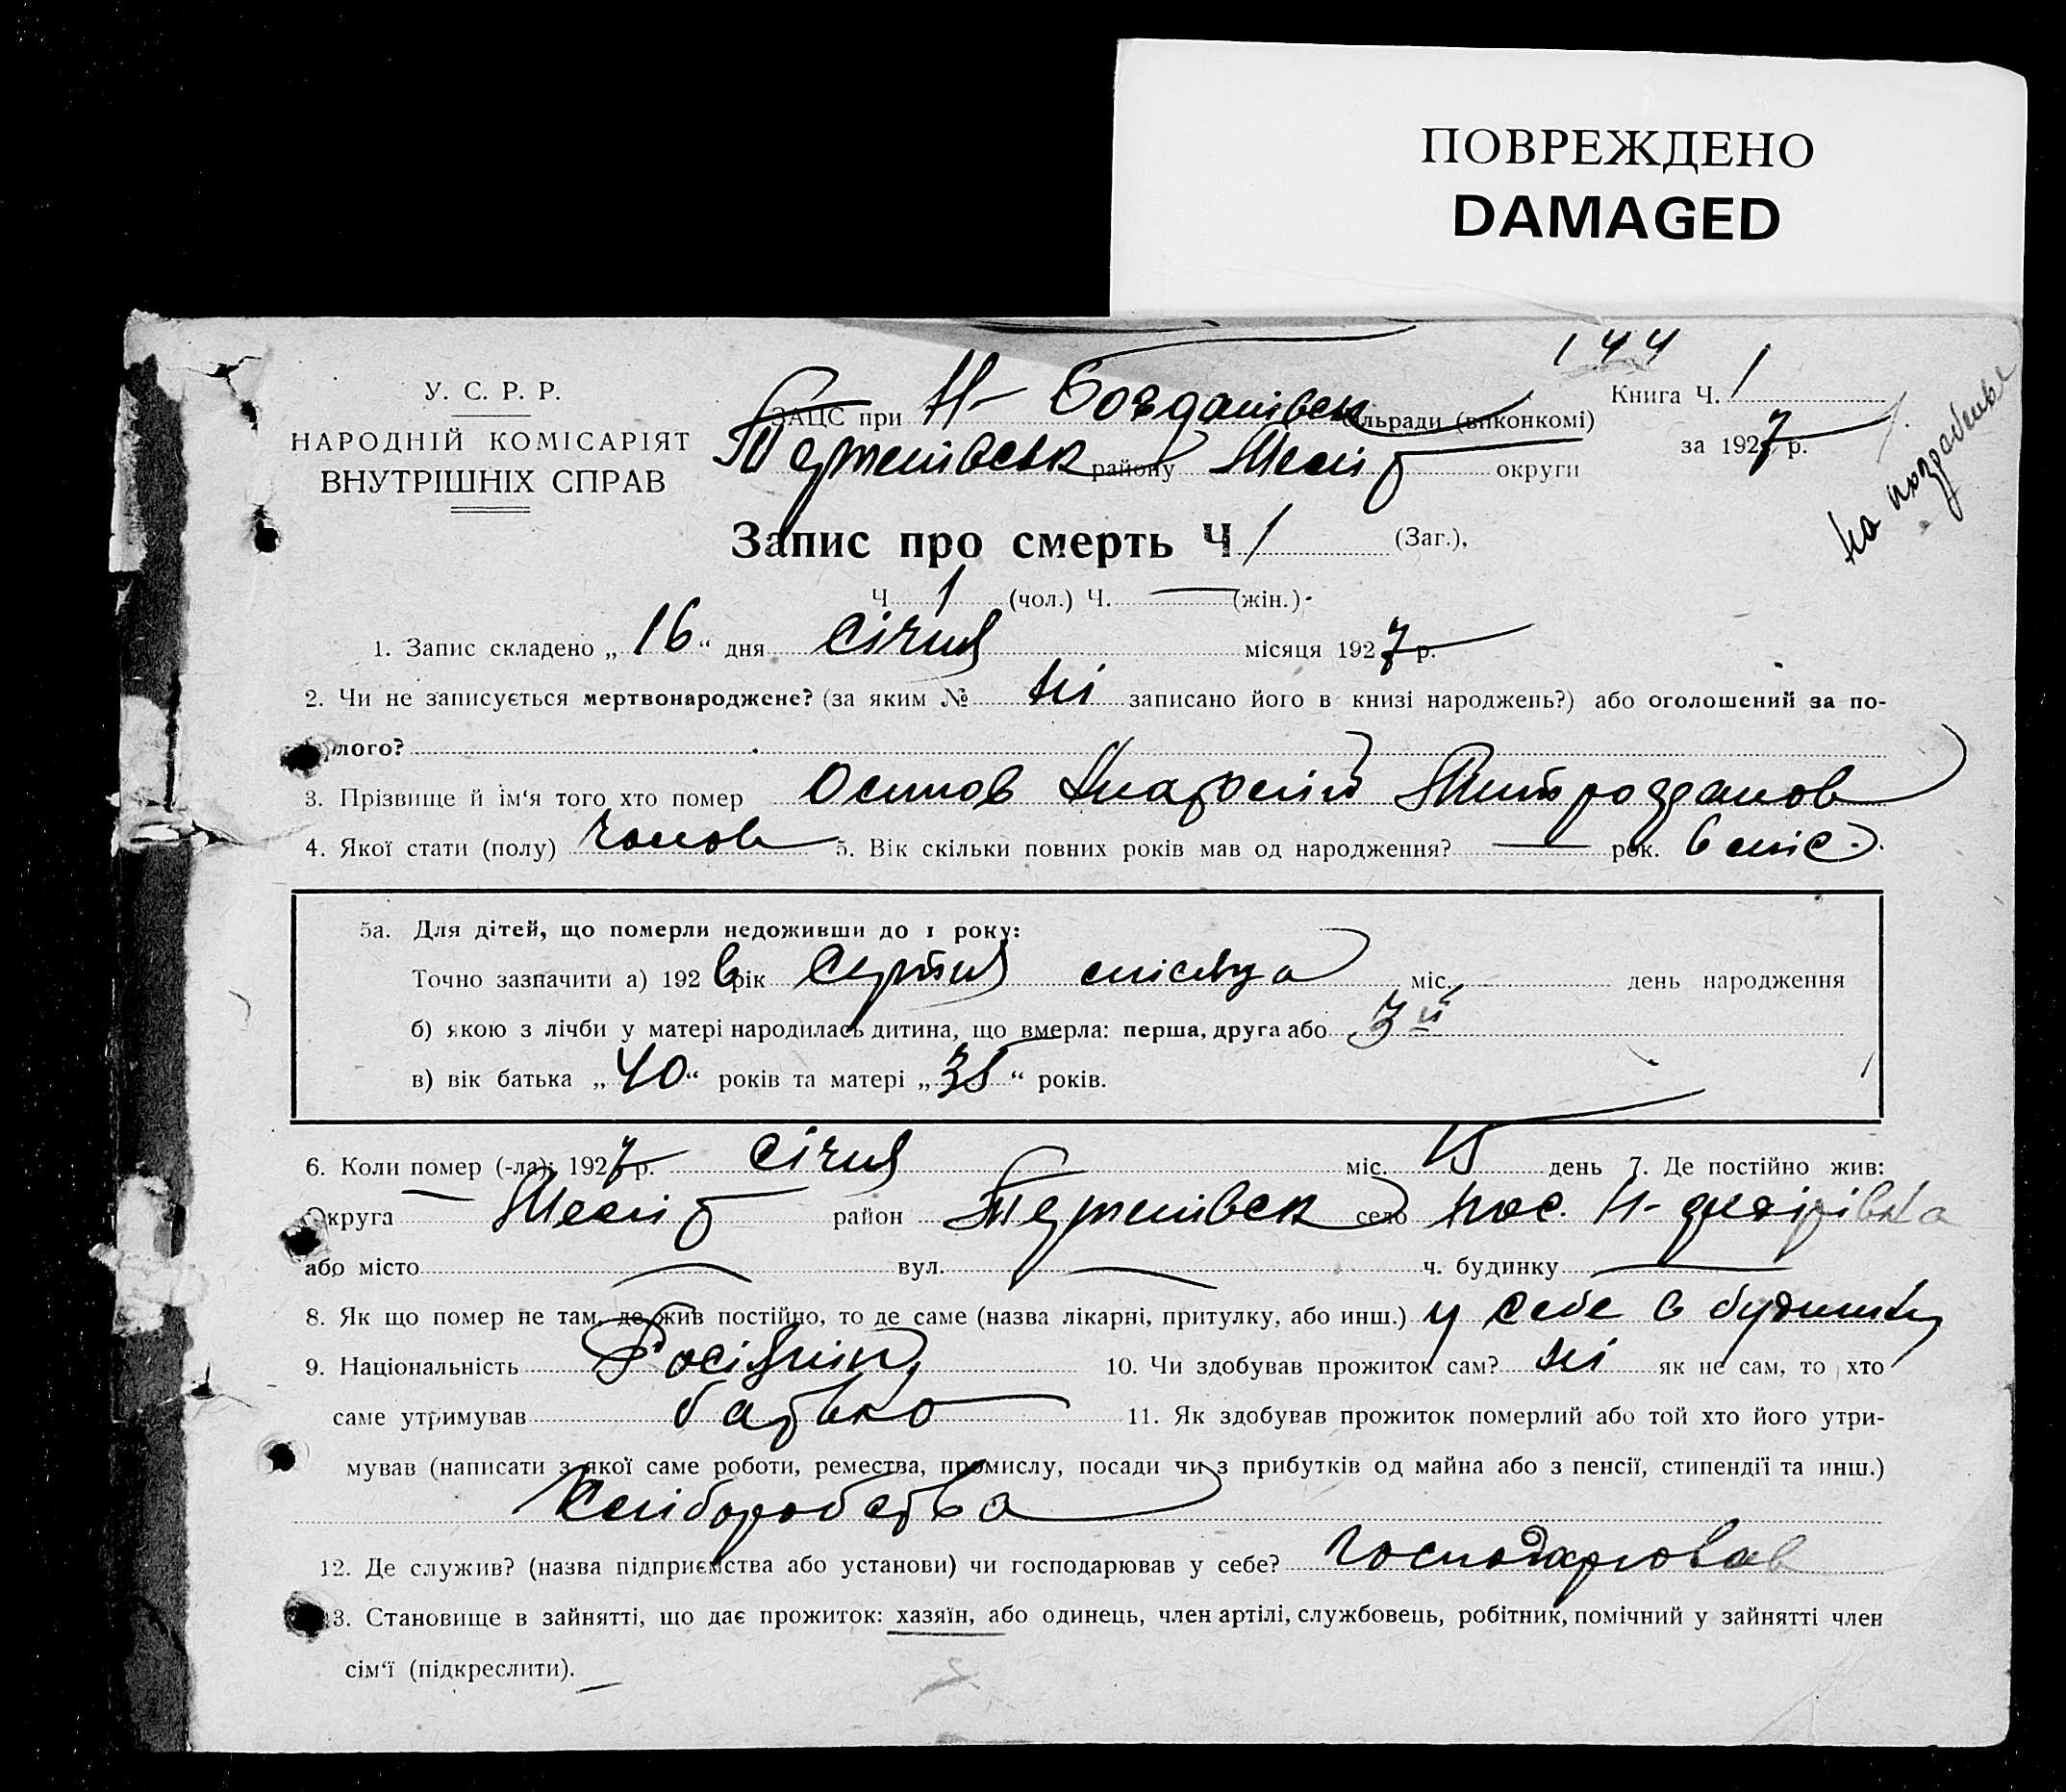 ПОВРЕЖДЕНО
DAMAGED
144
У. С. Р. Р.
НАРОДНІЙ КОМІСАРІЯТ
ВНУТРІШНІХ СПРАВ
ЗАЦС при Н- Богданівськ сільради (виконкомі)
району Меліт округи
Книга Ч. 1
за 1927 р.
Запис про смерть Ч 1 (Заг.),
Ч 1 (чол.) Ч. — (жін.)
1. Запис складено „ 16 “ дня січня місяця 1927 р.
2. Чи не записується мертвонароджене? (за яким № ні записано його в книзі народжень?) або оголошений за по-
лого?
3. Прізвище й ім‘я того хто помер Осипов
4. Якої стати (полу) чолов 5. Вік скільки повних років мав од народження? — рок. 6 міс.
5а. Для дітей, що померли недоживши до 1 року:
Точно зазначити а) 1926 рік Серпня місяця міс. день народження
б) якою з лічби у матері народилась дитина, що вмерла: перша, друга або 3й
в) вік батька „ 40 “ років та матері „ 35 “ років.
6. Коли помер (-ла): 1927 р. січня міс. 15 день 7. Де постійно жив:
Округа Меліт район село пос. Н-
або місто — вул. — ч. будинку —
8. Як що помер не там, де жив постійно, то де саме (назва лікарні, притулку, або инш.) у себе в будинку
9. Національність Росіянин 10. Чи здобував прожиток сам? ні як не сам, то хто
саме утримував батько 11. Як здобував прожиток померлий або той хто його утри-
мував (написати з якої саме роботи, ремества, промислу, посади чи з прибутків од майна або з пенсії, стипендії та инш.)
Хліборобства
12. Де служив? (назва підприємства або установи) чи господарював у себе? Господарював
13. Становище в зайнятті, що дає прожиток: хазяїн, або одинець, член артілі, службовець, робітник, помічний у зайнятті член
сім‘ї (підкреслити).